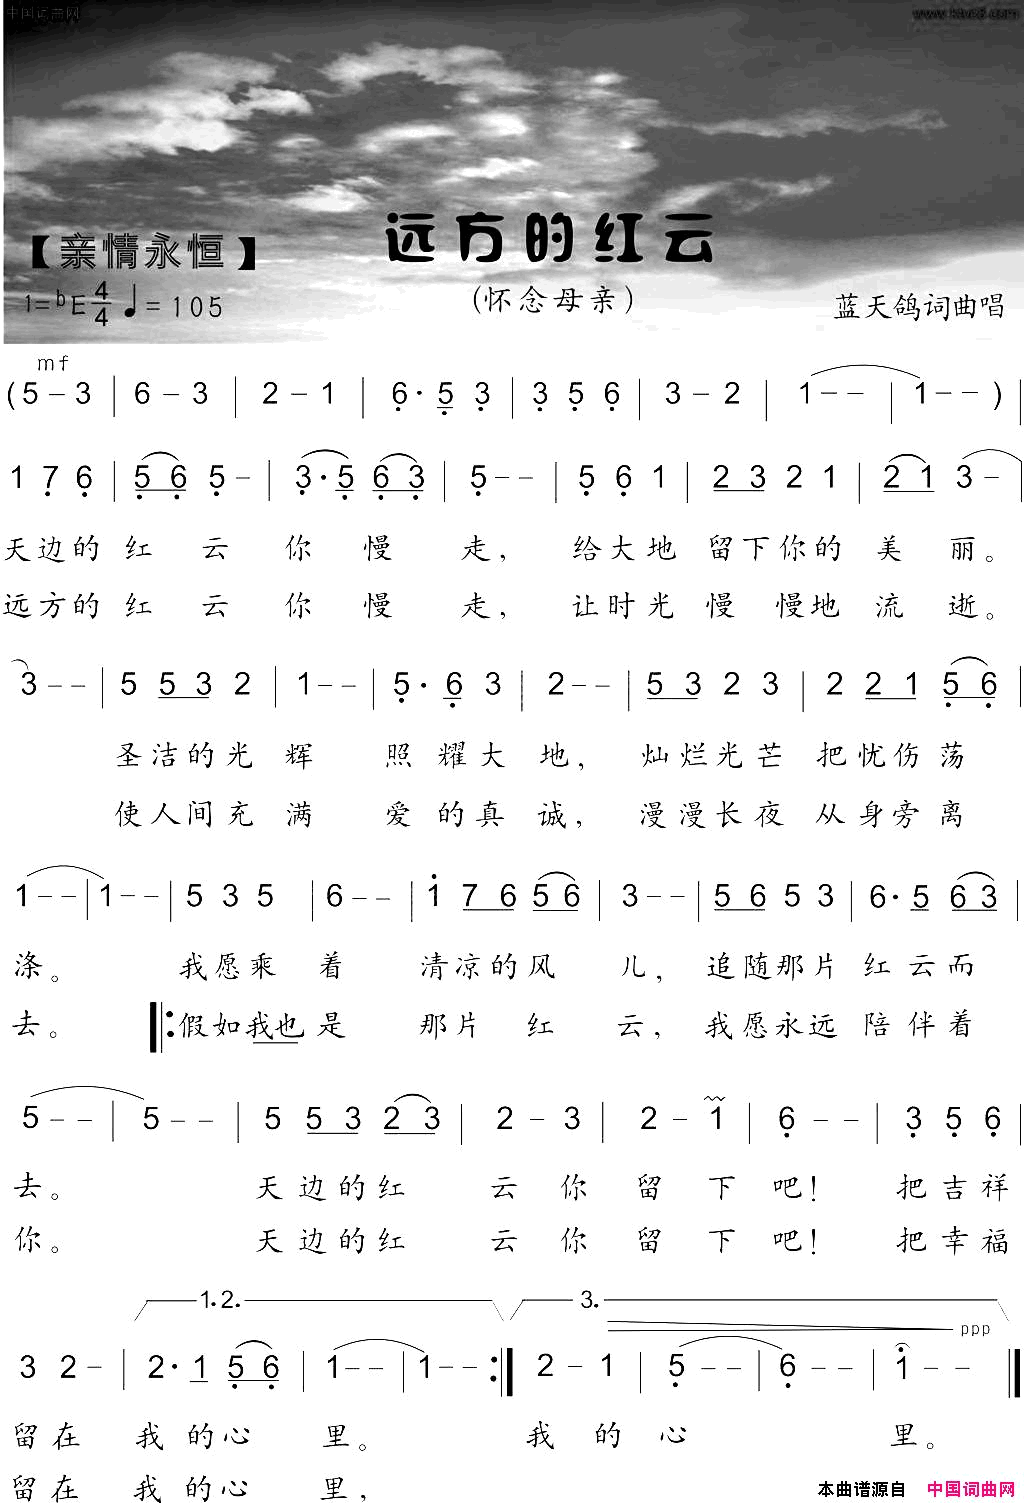 中国词曲网 www.ktvc8.com
远方的红云
【亲情永恒】
(怀念母亲)
1=bE 4/4 ♩=105
蓝天鸽词曲唱
mf
(5 - 3 | 6 - 3 | 2 - 1 | 6̣· 5̣ 3̣ | 3̣ 5̣ 6̣ | 3 - 2 | 1 - - | 1 - - ) |
1 7̣ 6̣ | 5̣ 6̣ 5̣ - | 3̣· 5̣ 6̣ 3̣ | 5̣ - - | 5̣ 6̣ 1 | 2 3 2 1 | 2 1 3 - |
天边的 红 云 你 慢 走, 给大地 留下你的 美 丽。
远方的 红 云 你 慢 走, 让时光 慢 慢地 流 逝。
3 - - | 5 5 3 2 | 1 - - | 5̣· 6̣ 3 | 2 - - | 5 3 2 3 | 2 2 1 5̣ 6̣ |
圣洁的光 辉 照 耀大 地, 灿烂光芒 把忧伤荡
使人间充 满 爱 的真 诚, 漫漫长夜 从身旁离
1 - - | 1 - - | 5 3 5 | 6 - - | 1̇ 7 6 5 6 | 3 - - | 5 6 5 3 | 6· 5 6 3 |
涤。 我愿乘 着 清凉的风 儿, 追随那片 红云而
去。 假如我也 是 那片 红 云, 我愿永远 陪伴着
5 - - | 5 - - | 5 5 3 2 3 | 2 - 3 | 2 - 1 | 6̣ - - | 3̣ 5̣ 6̣ |
去。 天边的红 云 你 留 下 吧! 把吉祥
你。 天边的红 云 你 留 下 吧! 把幸福
1. 2. 3.
ppp
3 2 - | 2· 1 5̣ 6̣ | 1 - - | 1 - - :| 2 - 1 | 5̣ - - | 6̣ - - | 1̇ - - |
留在 我 的心 里。 我 的 心 里。
留在 我 的心 里,
本曲谱源自 中国词曲网